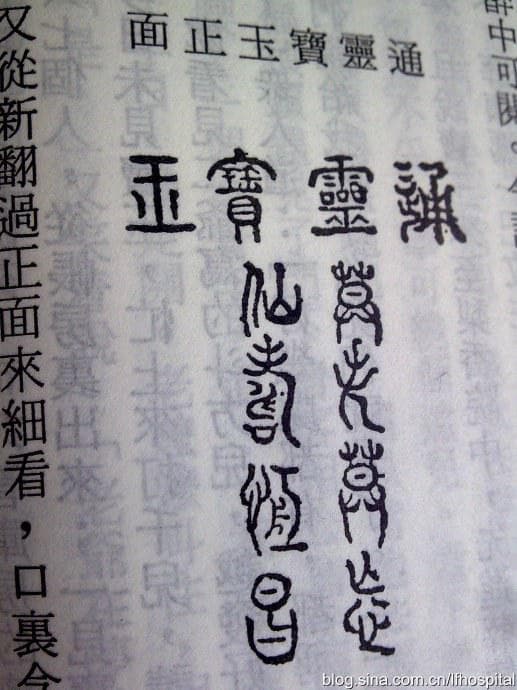 中可閱。
通靈寶玉正面
通靈寶玉
莫失莫忘
仙壽恒昌
又從新翻過正面來細看，口裏
blog.sina.com.cn/lfhospital